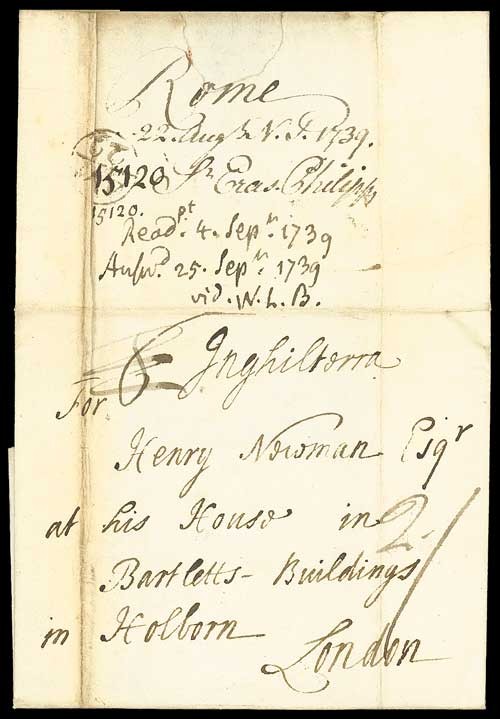 Rome
22. Aug.t N.S. 1739.
15120 Sr Eras. Philipps
15120.
Read. 4. Sepr. 1739
Answ.d 25. Sepr. 1739
vid. W. L. B.
Inghilterra
For
Henry Newman Esqr
at his House in
Bartletts-Buildings
in Holborn
London